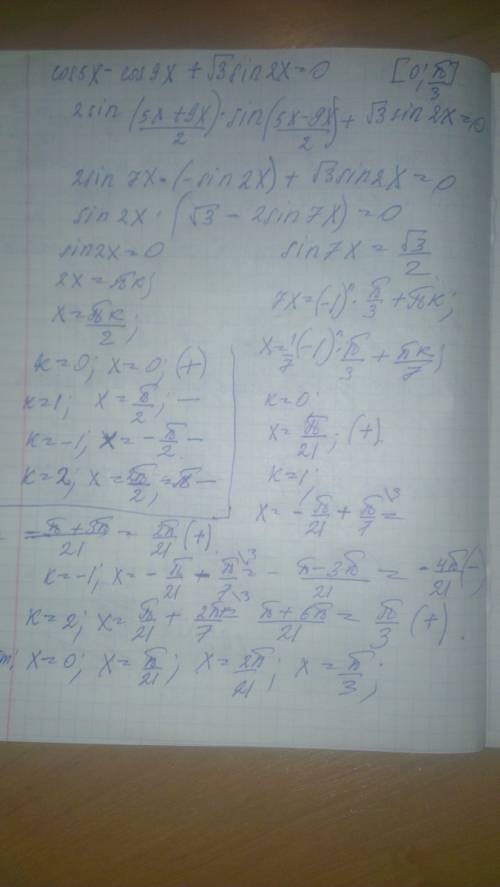 cos5x - cos9x + √3 sin2x = 0 [0; π/3]
2sin((5x+9x)/2) · sin((5x-9x)/2) + √3 sin2x = 0
2sin7x · (-sin2x) + √3 sin2x = 0
sin2x · (√3 - 2sin7x) = 0
sin2x = 0
2x = πk;
x = πk/2;
k=0; x=0; (+)
k=1; x = π/2; -
k=-1; x = -π/2 -
k=2; x = 2π/2; = π -
sin7x = √3/2
7x = (-1)ⁿ · π/3 + πk;
x = 1/7 (-1)ⁿ · π/3 + πk/7;
k=0;
x = π/21; (+)
k=1;
x = -π/21 + π/7\3 =
= (-π+3π)/21 = 2π/21 (+).
k=-1; x = -π/21 - π/7\3 = (-π-3π)/21 = -4π/21 (-)
k=2; x = π/21 + 2πk/7\3 = (π+6π)/21 = π/3 (+).
x=0; x = π/21; x = 2π/21; x = π/3;